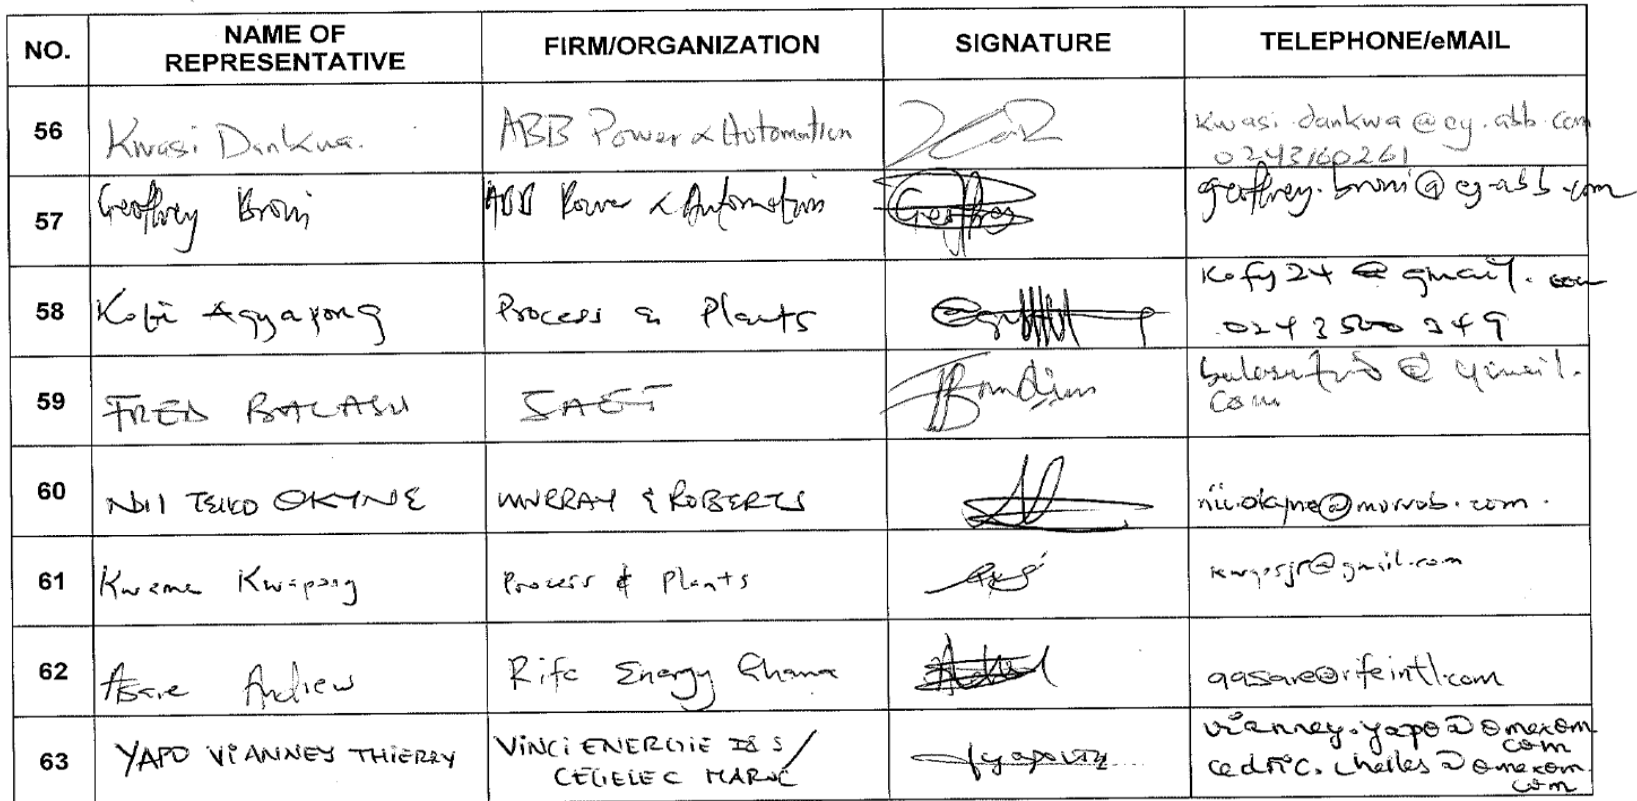 NO.
NAME OF
REPRESENTATIVE
FIRM/ORGANIZATION
SIGNATURE
TELEPHONE/eMAIL
56
Kwasi Dankwa.
ABB Power & Automation
kwasi.dankwa@eg.abb.com
0243160261
57
Geoffrey Broni
ABB Power & Automation
Geoffrey
geoffrey.broni@eg.abb.com
58
Kofi Agyapong
Process & Plants
kofy24@gmail.com
0243500349
59
FRED BALASU
@gmail.
com
60
NII TEIKO OKYNE
MURRAY & ROBERTS
nii.okyne@murrob.com.
61
Kwame Kwapong
Process & Plants
@gmail.com
62
Asare Andrew
Rife Energy Ghana
aasare@rifeintl.com
63
YAPO VIANNEY THIERRY
VINCI ENERGIE
CEGELEC MAROC
vianney.yapo@omexom.
com
cedric. @omexom.
com